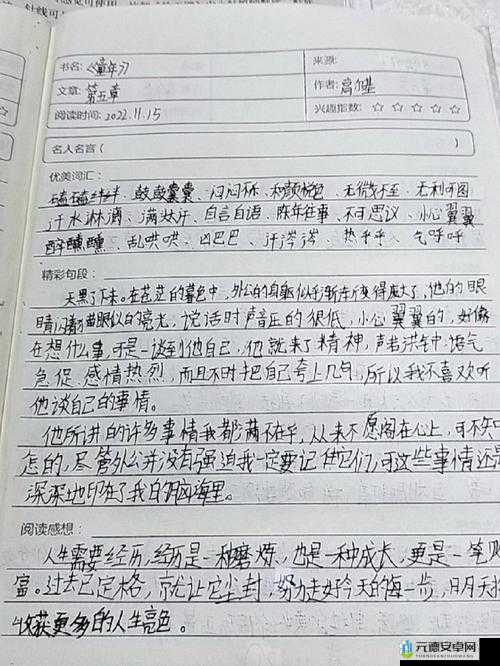 书名: 《童年》
来源:
文章: 第五章
作者: 高尔基
阅读时间: 2022.11.15
兴趣指数: ☆ ☆ ☆ ☆ ☆
名人名言 ( )
优美词汇:
磕磕绊绊、鼓鼓囊囊、闷闷不乐、和颜悦色、无微不至、无利可图
汗水淋漓、满头大汗、自言自语、陈年往事、不可思议、小心翼翼
醉醺醺、乱哄哄、凶巴巴、汗涔涔、热乎乎、气呼呼
精彩句段:
天黑了下来。在苍茫的暮色中,外公的身躯似乎渐渐变得庞大了,他的眼
睛闪着猫眼似的亮光,说话时声音压的很低,小心翼翼的,好像
在想什么事,可是一谈到他自己,他就来了精神,声若洪钟,语气
急促、感情热烈,而且不时把自己夸上几句,所以我不喜欢听
他谈自己的事情。
他所讲的许多事情我都满不在乎,从来不愿阁在心上,可不知
怎的,尽管外公并没有强迫我一定要记住它们,可这些事情还是
深深地印在了我的脑海里。
阅读感想:
人生需要经历,经历是一种磨炼,也是一种成长,更是一笔财
富。过去已定格,就让它尘封,努力走好今天的每一步,
收获更多的人生亮色。
元德安卓网